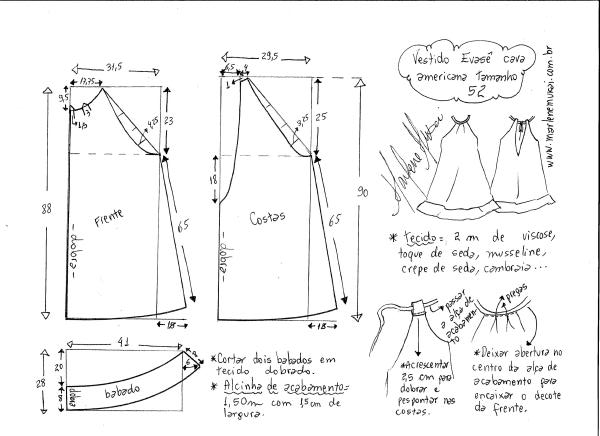 31,5
17,75
9,5
3
1,3
4,25
23
88
65
Frente
dobra
18
29,5
6,5
4
1
3,25
25
18
90
65
Costas
dobra
18
Vestido Evasê cava
americana Tamanho
52
Marlene Mukai
www.marlenemukai.com.br
* Tecido = 2 m de viscose,
toque de seda, musseline,
crepe de seda, cambraia...
passar
a alça
de
acabamen-
to
pregas
* Acrescentar
2,5 cm para
dobrar e
pespontar nas
costas.
* Deixar abertura no
centro da alça de
acabamento para
encaixar o decote
da frente.
41
20
28
8
6
babado
dobra
* Cortar dois babados em
tecido dobrado.
* Alcinha de acabamento =
1,50m com 1,5cm de
largura.